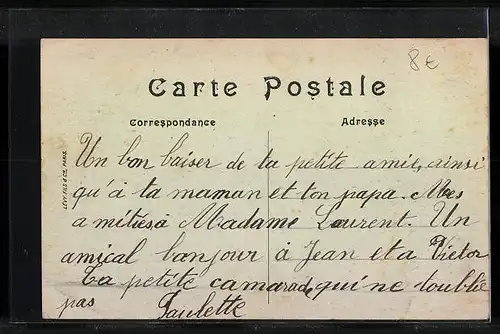 8€
Carte Postale
Correspondance
Adresse
LÉVY FILS & Cie, PARIS
Un bon baiser de ta petite amie, ainsi
qu'à ta maman et ton papa. Mes
amitiés à Madame Laurent. Un
amical bonjour à Jean et a Victor
Ta petite camarade, qui ne t'oublie
pas
Paulette